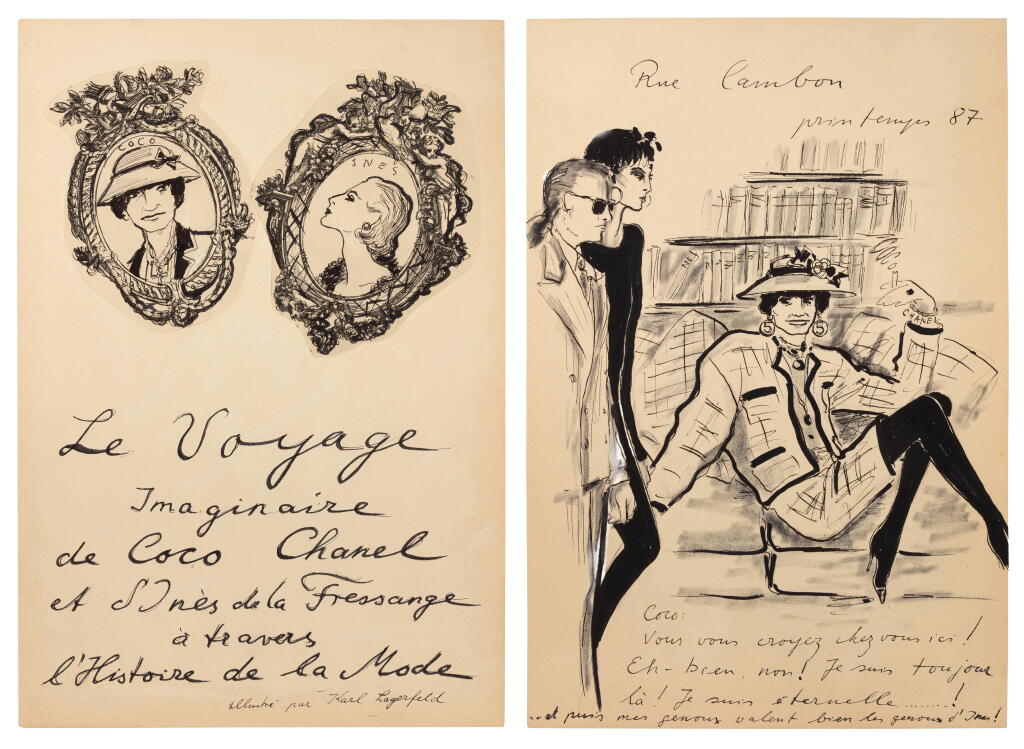 COCO
INES
Le Voyage
Imaginaire
de Coco Chanel
et d'Inès de la Fressange
à travers
l'Histoire de la Mode
illustré par Karl Lagerfeld
Rue Cambon
printemps 87
CHANEL
Coco:
Vous vous croyez chez vous ici !
Eh-bien, non! Je suis toujour
là! Je suis éternelle........!
...et puis mes genoux valent bien les genoux d'Ines!